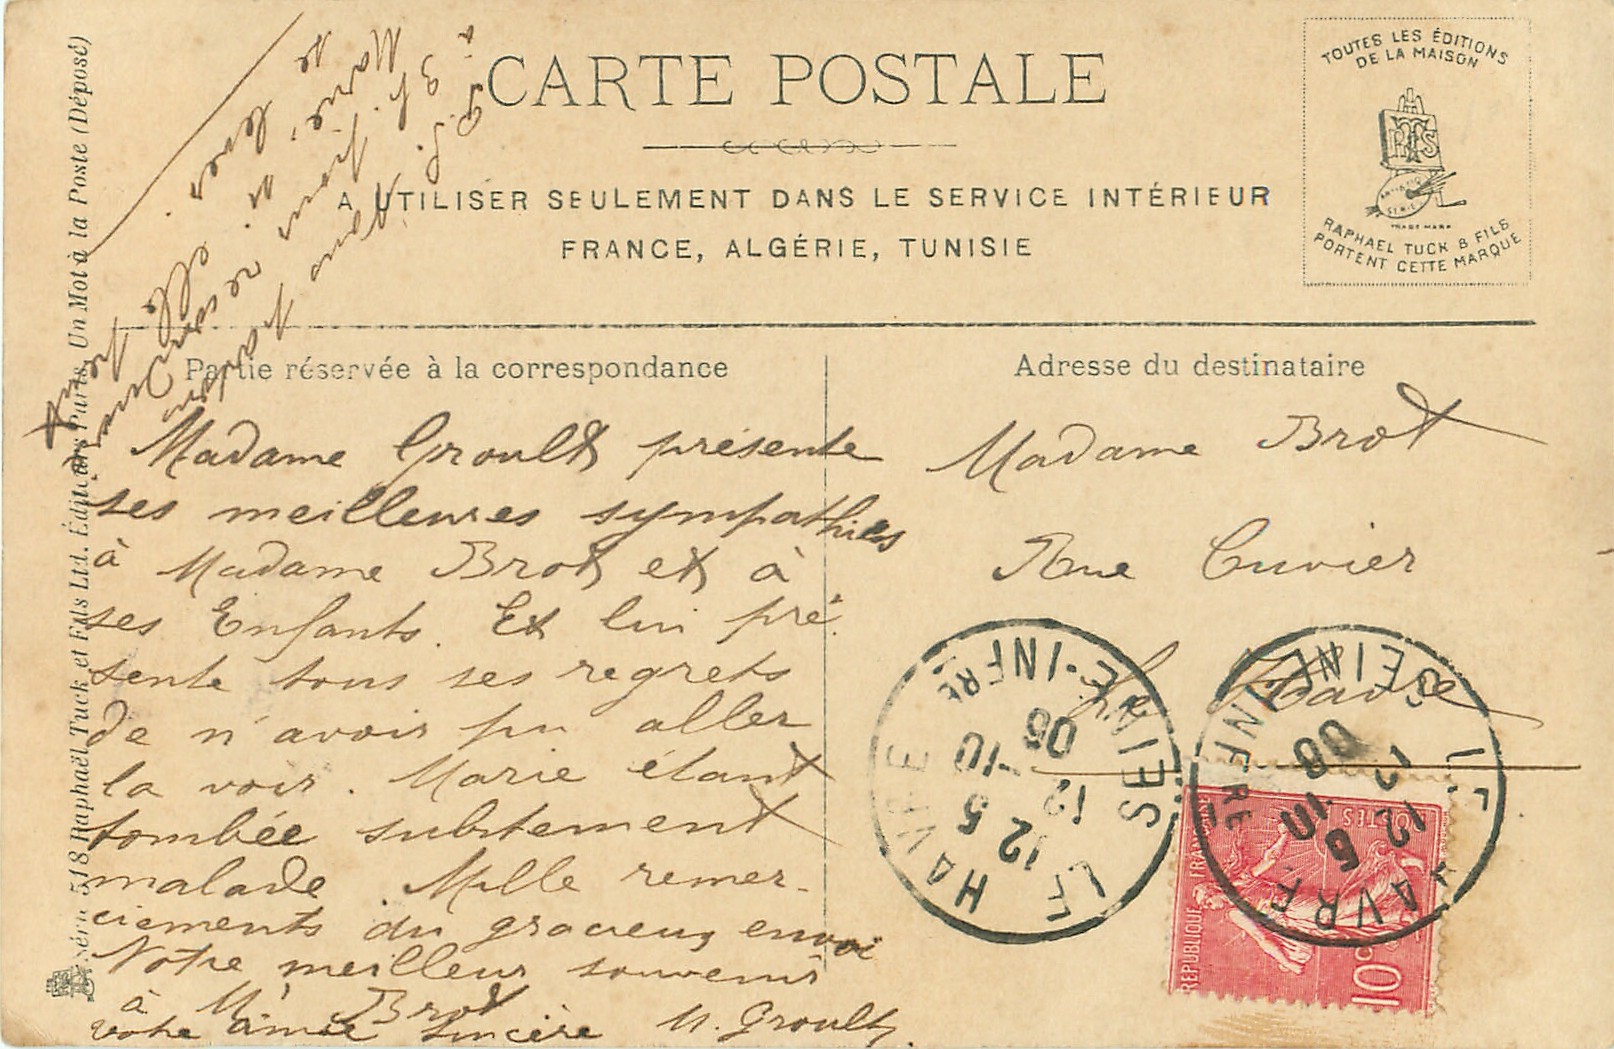 CARTE POSTALE
A UTILISER SEULEMENT DANS LE SERVICE INTÉRIEUR
FRANCE, ALGÉRIE, TUNISIE
TOUTES LES ÉDITIONS
DE LA MAISON
RTS
ARTISTIC
SERIES
TRADE MARK
RAPHAEL TUCK & FILS
PORTENT CETTE MARQUE
Partie réservée à la correspondance
Adresse du destinataire
Madame Groult présente
ses meilleures sympathies
à Madame Brot et à
ses Enfants. Et lui pré
sente tous ses regrets
de n'avoir pu aller
la voir. Marie étant
tombée subitement
malade. Mille remer-
ciements du gracieux envoi
Notre meilleur souvenir
à Mr Brot
votre amie sincère M. Groult
Madame Brot
Rue Cuvier
Le Havre
P. S.
3 h.
Marie
elle
LE HAVRE
SEINE-INFRE
12 5
12 -10
06
LE HAVRE
SEINE-INFRE
12 5
12 10
06
REPUBLIQUE FRANÇAISE
POSTES
10c
Série 518 Raphaël Tuck et Fils Ltd. Éditeurs Paris. Un Mot à la Poste (Déposé)